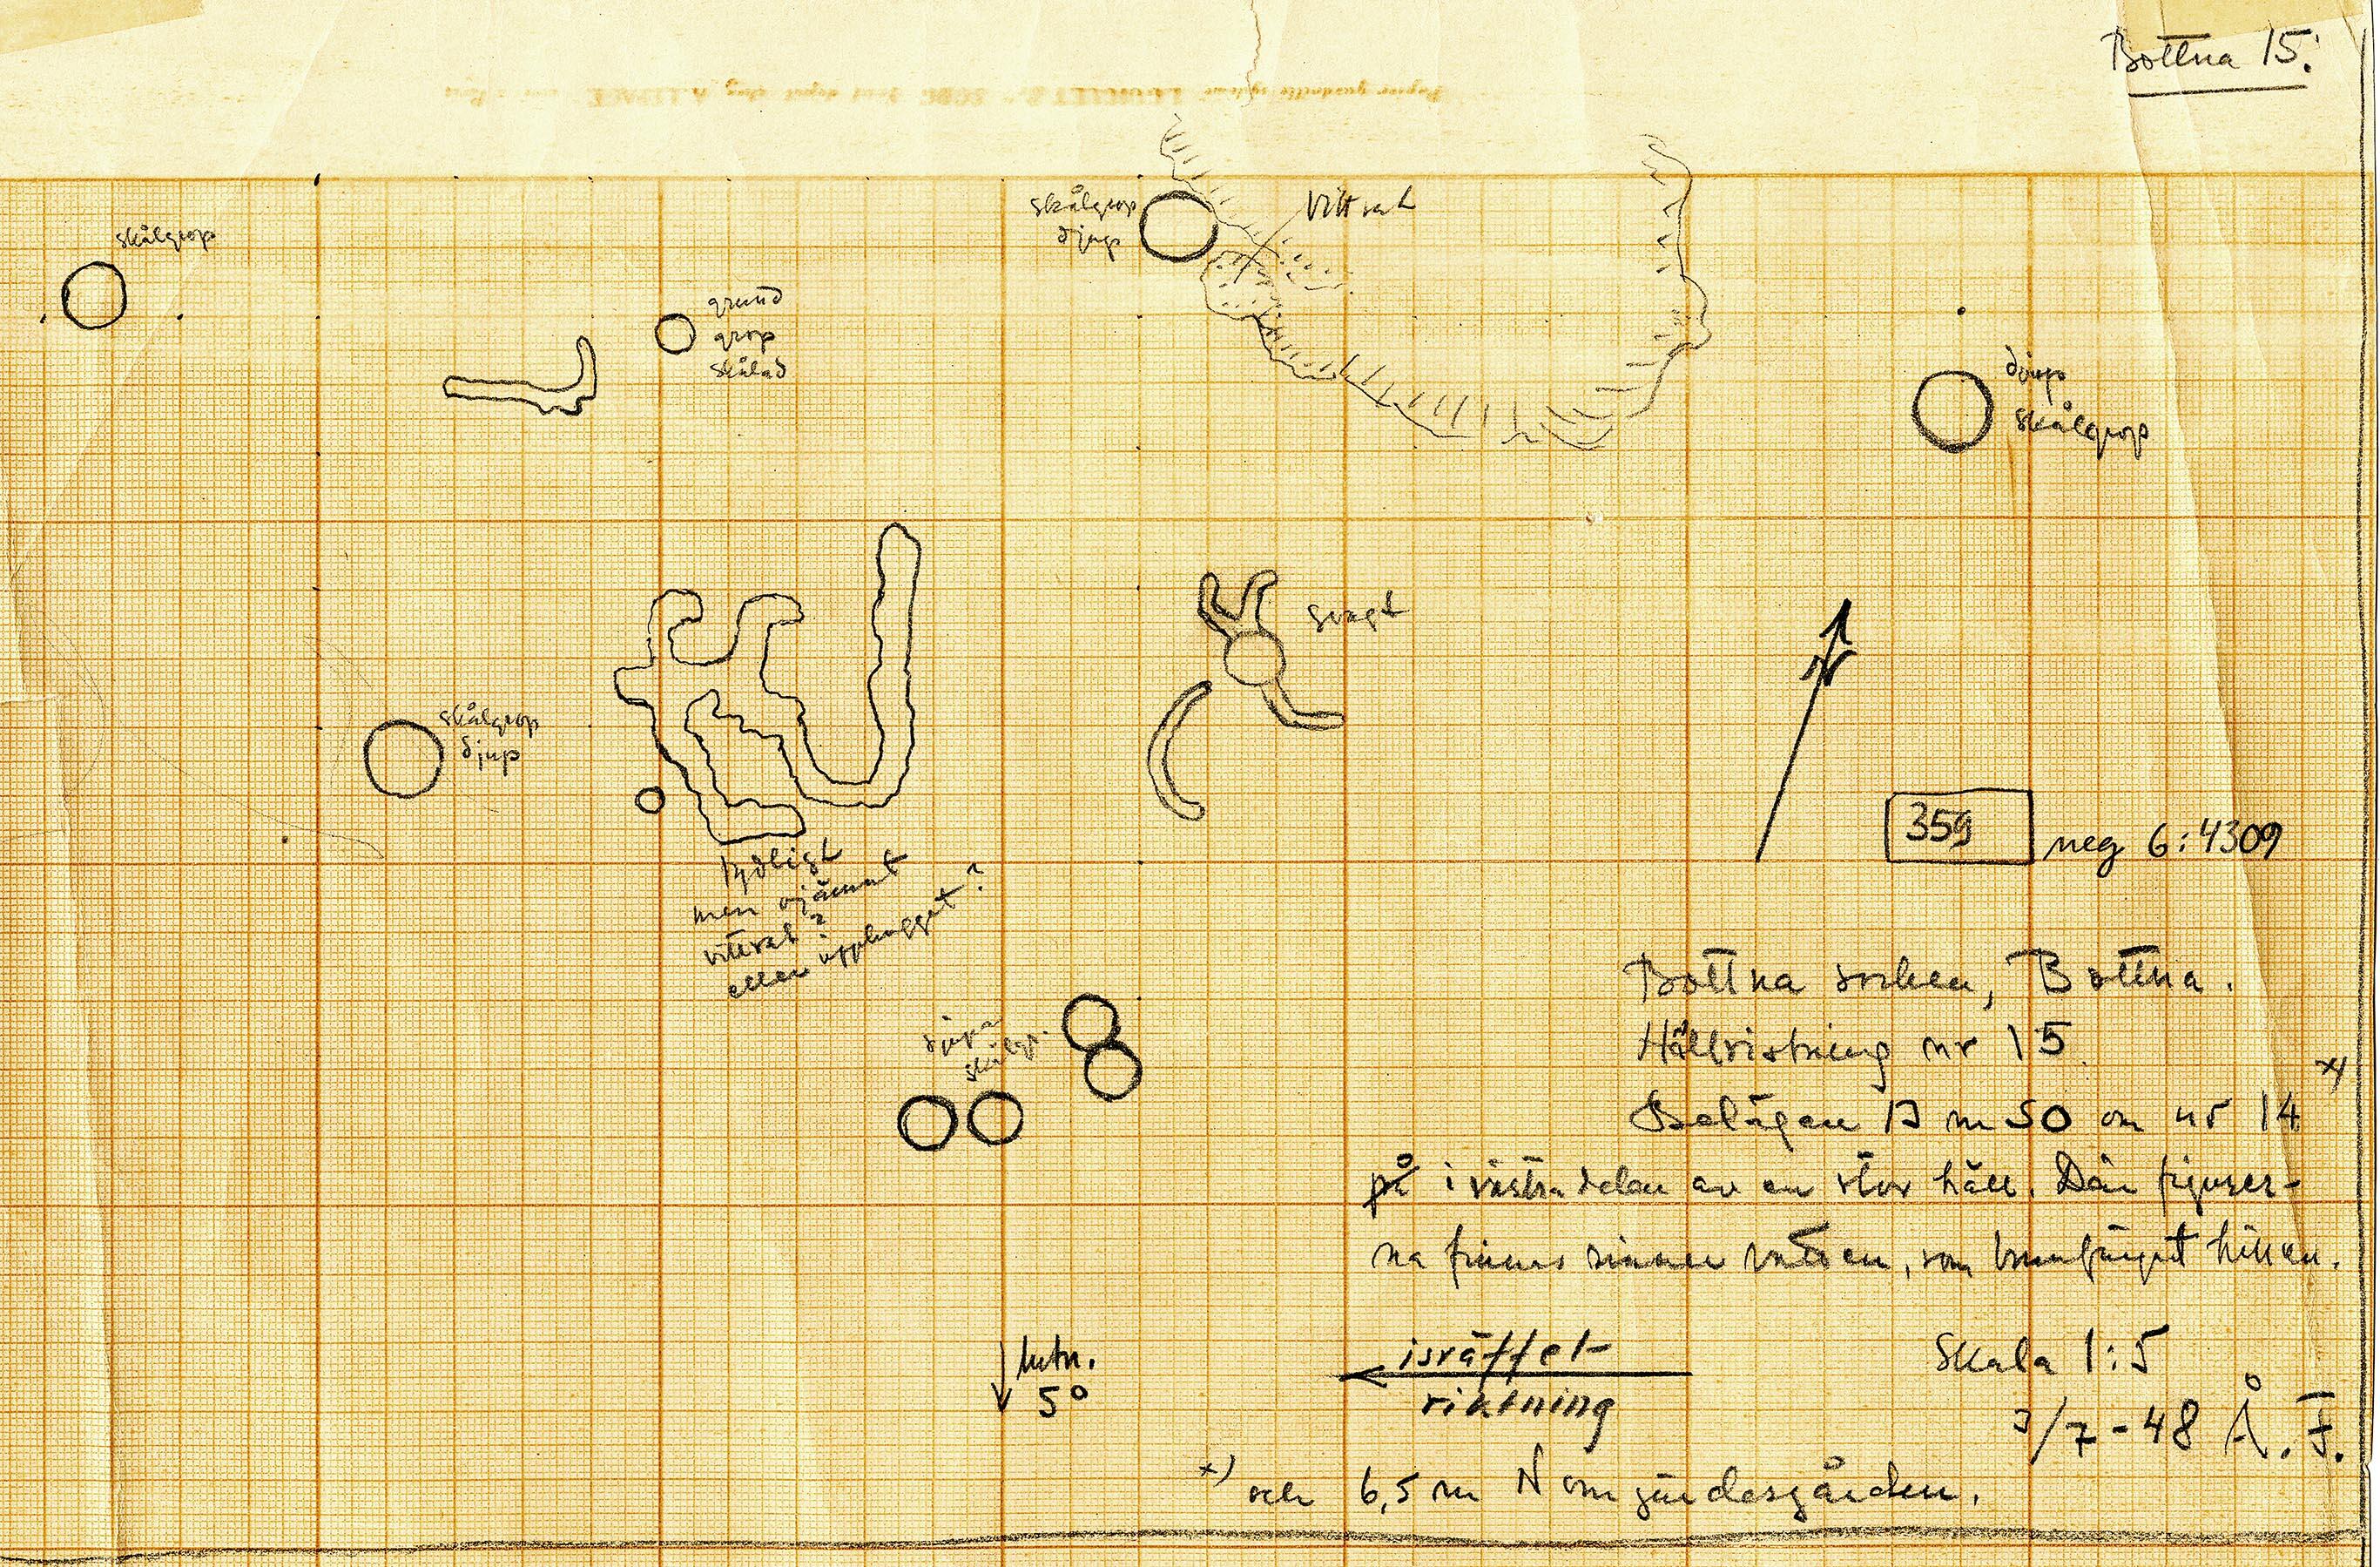 Bottna 15.
skålgrop
skålgrop
djup
Vittrat
grund
grop
skålad
djup
skålgrop
svagt
skålgrop
djup
359
neg 6:4309
tydligt
men ojämnt
vittrat?
eller upphugget?
djupa
skålgr.
Bottna socken, Bottna.
Hällristning nr 15.
Belägen 13 m SO om nr 14 x)
på i västra delen av en stor häll. Där figurer-
na finnes rinner vatten, som brunfärgat hällen.
lutn.
5°
isräffel-
riktning
Skala 1:5
3/7-48 Å.F.
x) och 6,5 m N om gärdesgården.